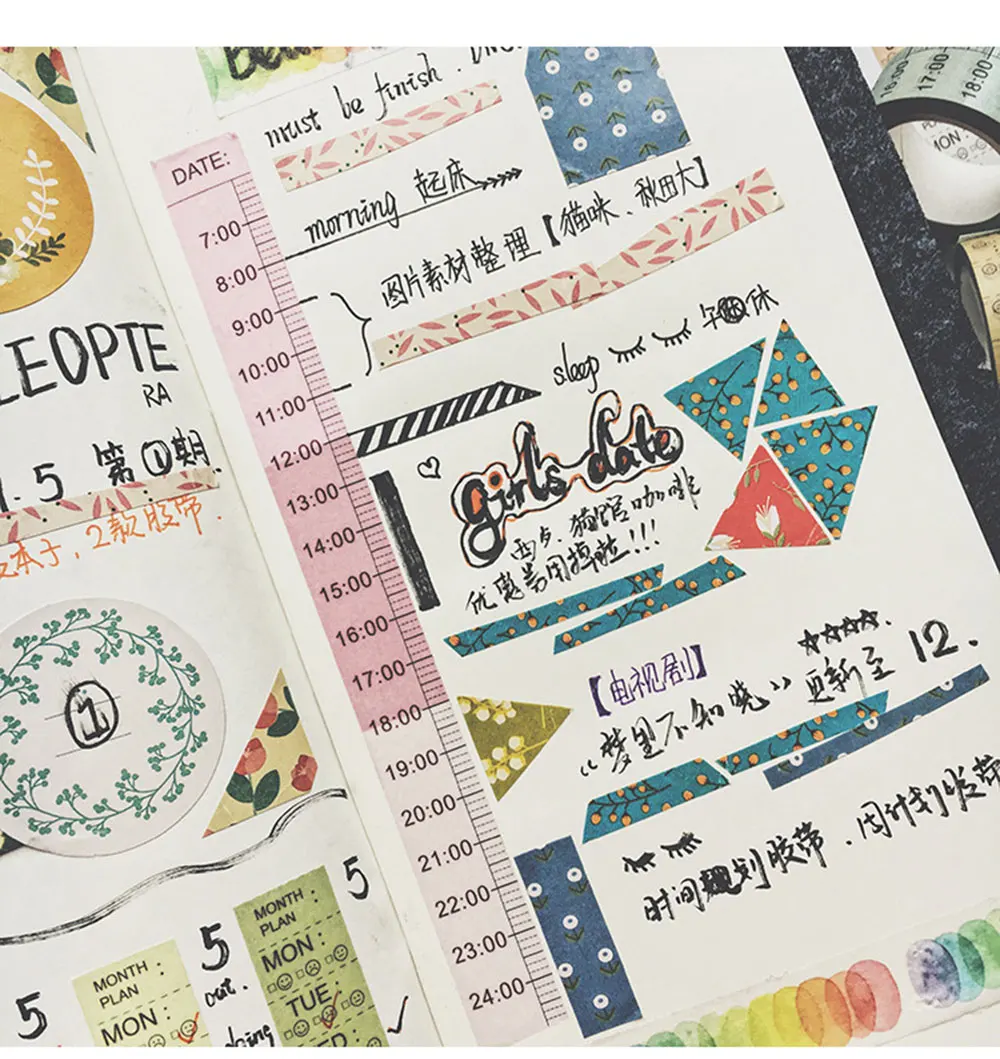 must be finish.
DATE:
morning 起床
7:00
8:00
9:00
10:00
11:00
12:00
13:00
14:00
15:00
16:00
17:00
18:00
19:00
20:00
21:00
22:00
23:00
24:00
图片素材整理【猫咪、秋田犬】
sleep 午休
girl's date
西点、猫咖啡
优惠券用掉啦!!!
【电视剧】
“梦里不知晓” 更新至 12.
时间规划胶带、周计划胶带
LEOPTE
RA
1.5 第①期.
本子,2款胶带.
1
5
MONTH PLAN
MON:
5
out.
doing
MONTH PLAN
MON:
TUE:
5
16:00
17:00
18:00
MON: